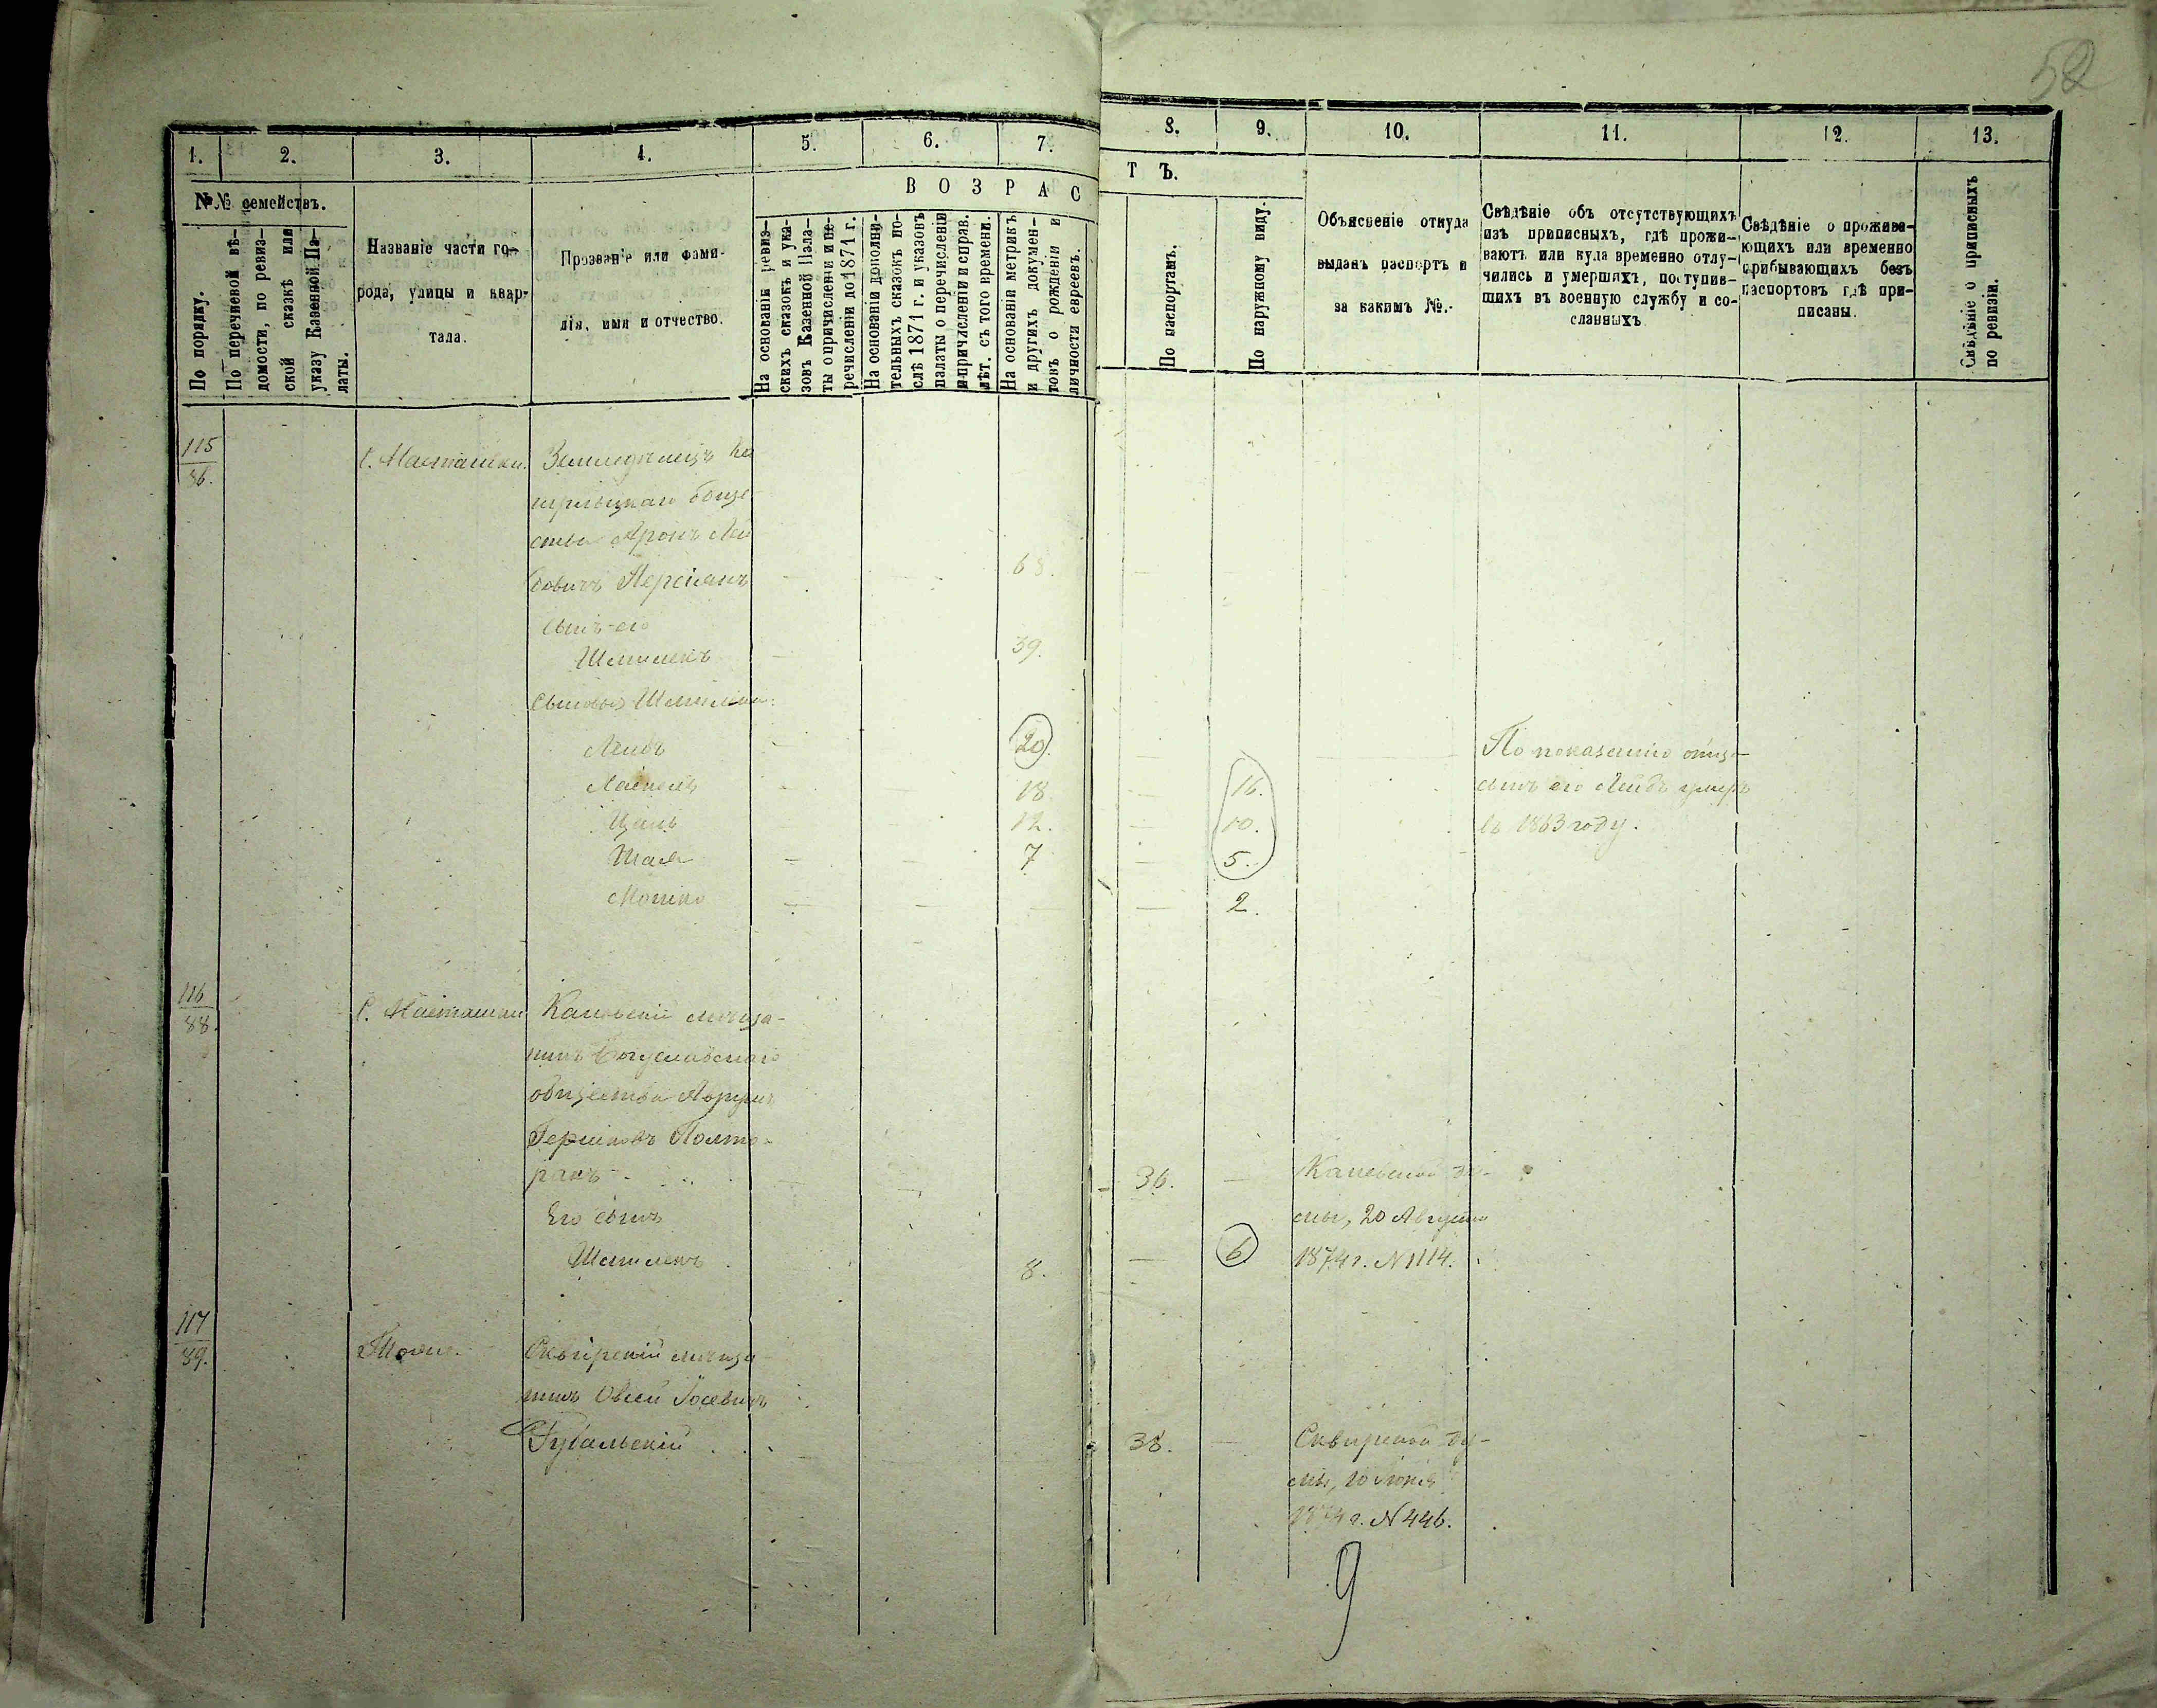 52
1.
2.
3.
4.
5.
6.
7.
8.
9.
10.
11.
12.
13.
№№ семействъ.
По порядку.
По перечневой вѣ-
домости, по ревиз-
ской сказкѣ или
указу Казенной Па-
латы.
Названіе части го-
рода, улицы и квар-
тала.
Прозваніе или фами-
лія, имя и отчество.
ВОЗРАС
ТЪ.
На основаніи ревиз-
скихъ сказокъ и ука-
зовъ Казенной Пала-
ты о причисленіи и пе-
речисленіи до 1871 г.
На основаніи дополни-
тельныхъ сказокъ по-
слѣ 1871 г. и указовъ
палаты о перечисленіи
и причисленіи и справ.
лѣт. съ того времени.
На основаніи метрикъ
и другихъ докумен-
товъ о рожденіи и
личности евреевъ.
По паспортамъ.
По наружному виду.
Объясненіе откуда
выданъ паспортъ и
за какимъ №.
Свѣдѣніе объ отсутствующихъ
изъ приписныхъ, гдѣ прожи-
ваютъ или куда временно отлу-
чились и умершихъ, поступив-
шихъ въ военную службу и со-
сланныхъ
Свѣдѣніе о прожива-
ющихъ или временно
прибывающихъ безъ
паспортовъ гдѣ при-
писаны.
Свѣдѣніе о приписныхъ
по ревизіи.
115
86.
С. Насташки.
Земледѣлецъ
обще-
ства Аронъ Лей
бовичъ
68.
Сынъ его
Шмилекъ
39.
Сыновья Шмилека:
Лейбъ
20.
По показанію отца
18.
16.
сынъ его Лейбъ умеръ
12.
10.
въ 1863 году.
7
5.
Мошко
2.
116
88.
С. Насташки
Каневскій мѣща-
нинъ Богуславскаго
общества
Гершковъ Полто-
ракъ
36.
Каневской ду-
Его сынъ
мы, 20 Августа
Шмилекъ
8.
6
1874 г. № 1114.
117
89.
Тоже.
Сквирскій мѣща
нинъ Овсей Іосевичъ
38.
Сквирской ду-
мы, 10 Іюня
1874 г. № 446.
9